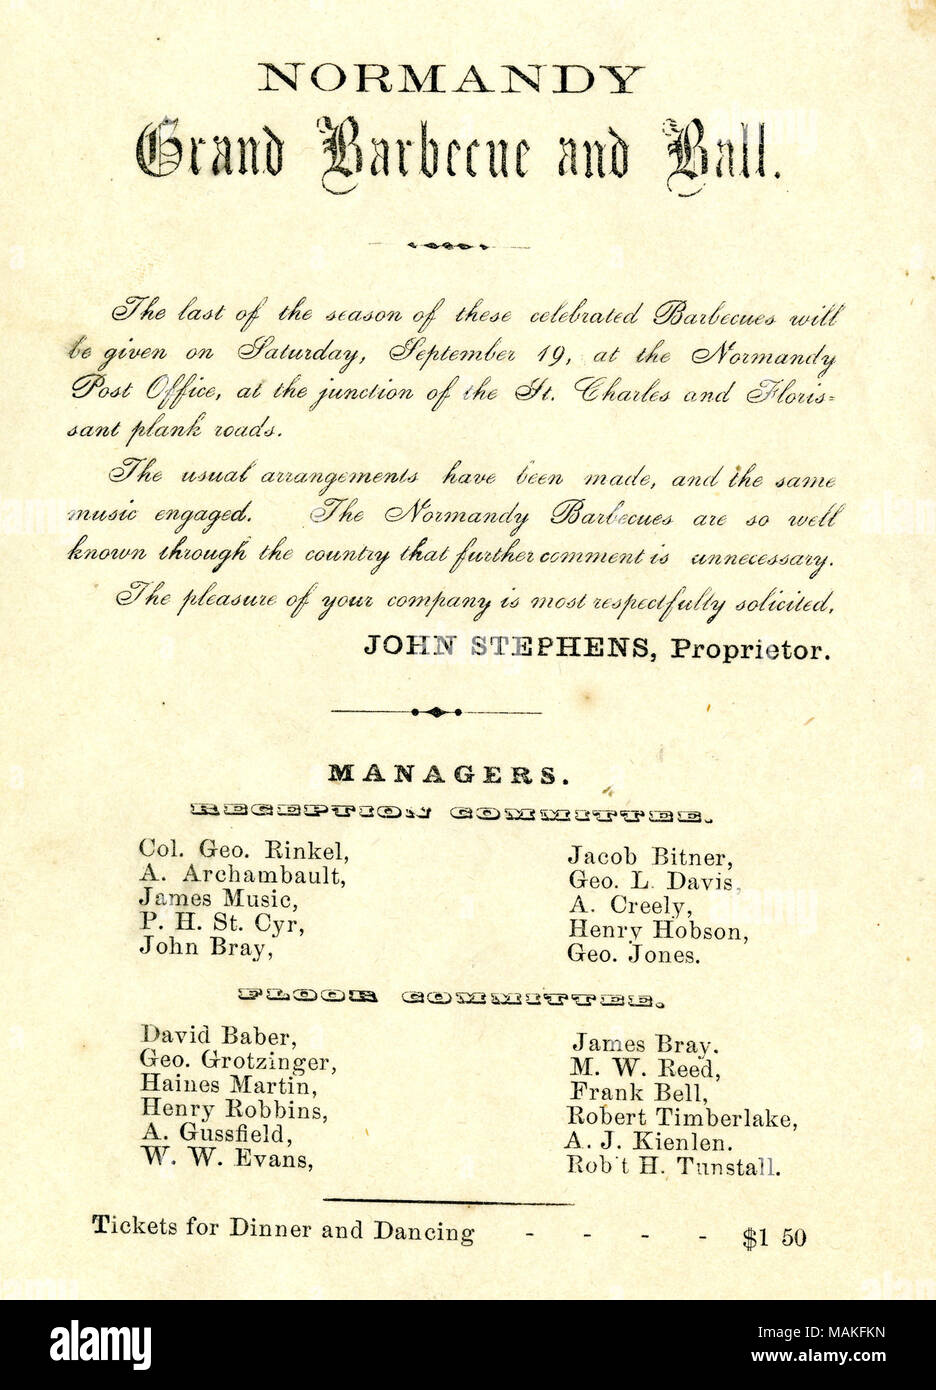 NORMANDY
Grand Barbecue and Ball.
The last of the season of these celebrated Barbecues will
be given on Saturday, September 19, at the Normandy
Post Office, at the junction of the St. Charles and Floris=
sant plank roads.
The usual arrangements have been made, and the same
music engaged. The Normandy Barbecues are so well
known through the country that further comment is unnecessary.
The pleasure of your company is most respectfully solicited,
JOHN STEPHENS, Proprietor.
MANAGERS.
RECEPTION COMMITTEE.
Col. Geo. Rinkel,
A. Archambault,
James Music,
P. H. St. Cyr,
John Bray,
Jacob Bitner,
Geo. L. Davis,
A. Creely,
Henry Hobson,
Geo. Jones.
FLOOR COMMITTEE.
David Baber,
Geo. Grotzinger,
Haines Martin,
Henry Robbins,
A. Gussfield,
W. W. Evans,
James Bray.
M. W. Reed,
Frank Bell,
Robert Timberlake,
A. J. Kienlen.
Rob't H. Tunstall.
Tickets for Dinner and Dancing - - - - $1 50
alamy
Image ID: MAKFKN
www.alamy.com